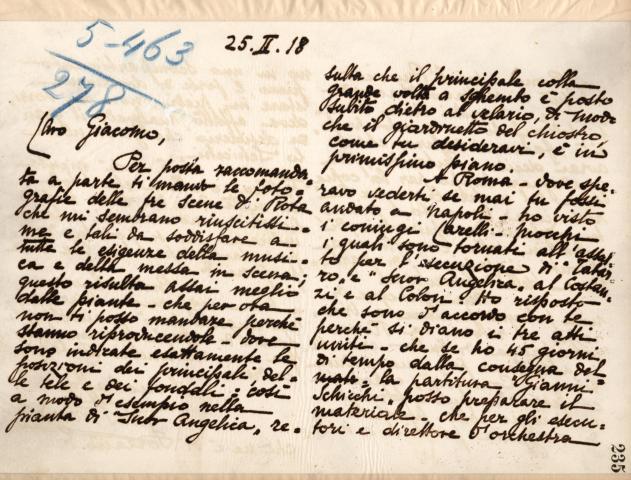 5-463
278
25. II. 18
Caro Giacomo,
Per posta raccomanda-
ta a parte ti mando le foto-
grafie delle tre scene di Rota
che mi sembrano riuscitissi-
me e tali da soddisfare a
tutte le esigenze della musi-
ca e della messa in scena;
questo risulta assai meglio
dalle piante - che per ora
non ti posso mandare perché
stanno riproducendole - dove
sono indicate esattamente le
posizioni dei principali, del-
le tele e dei fondali; così
a modo d'esempio nella
pianta di "Suor Angelica", re-
sulta che il principale colla
grande volta a sghembo è posto
subito dietro al velario, di modo
che il giardinetto del chiostro,
come tu desideravi, è in
primissimo piano.
A Roma - dove spe-
ravo vederti, se mai tu fossi
andato a Napoli - ho visto
i coniugi Carelli - Mocchi
i quali sono tornati all'assal-
to per l'esecuzione di "Tabar-
ro" e "Suor Angelica" al Costan-
zi e al Colon. Ho risposto
che sono d'accordo con te
perché si diano i tre atti
uniti - che se ho 45 giorni
di tempo dalla consegna del-
la partitura "Gianni
Schicchi", posso preparare il
materiale - che per gli esecu-
tori e direttore d'orchestra
235